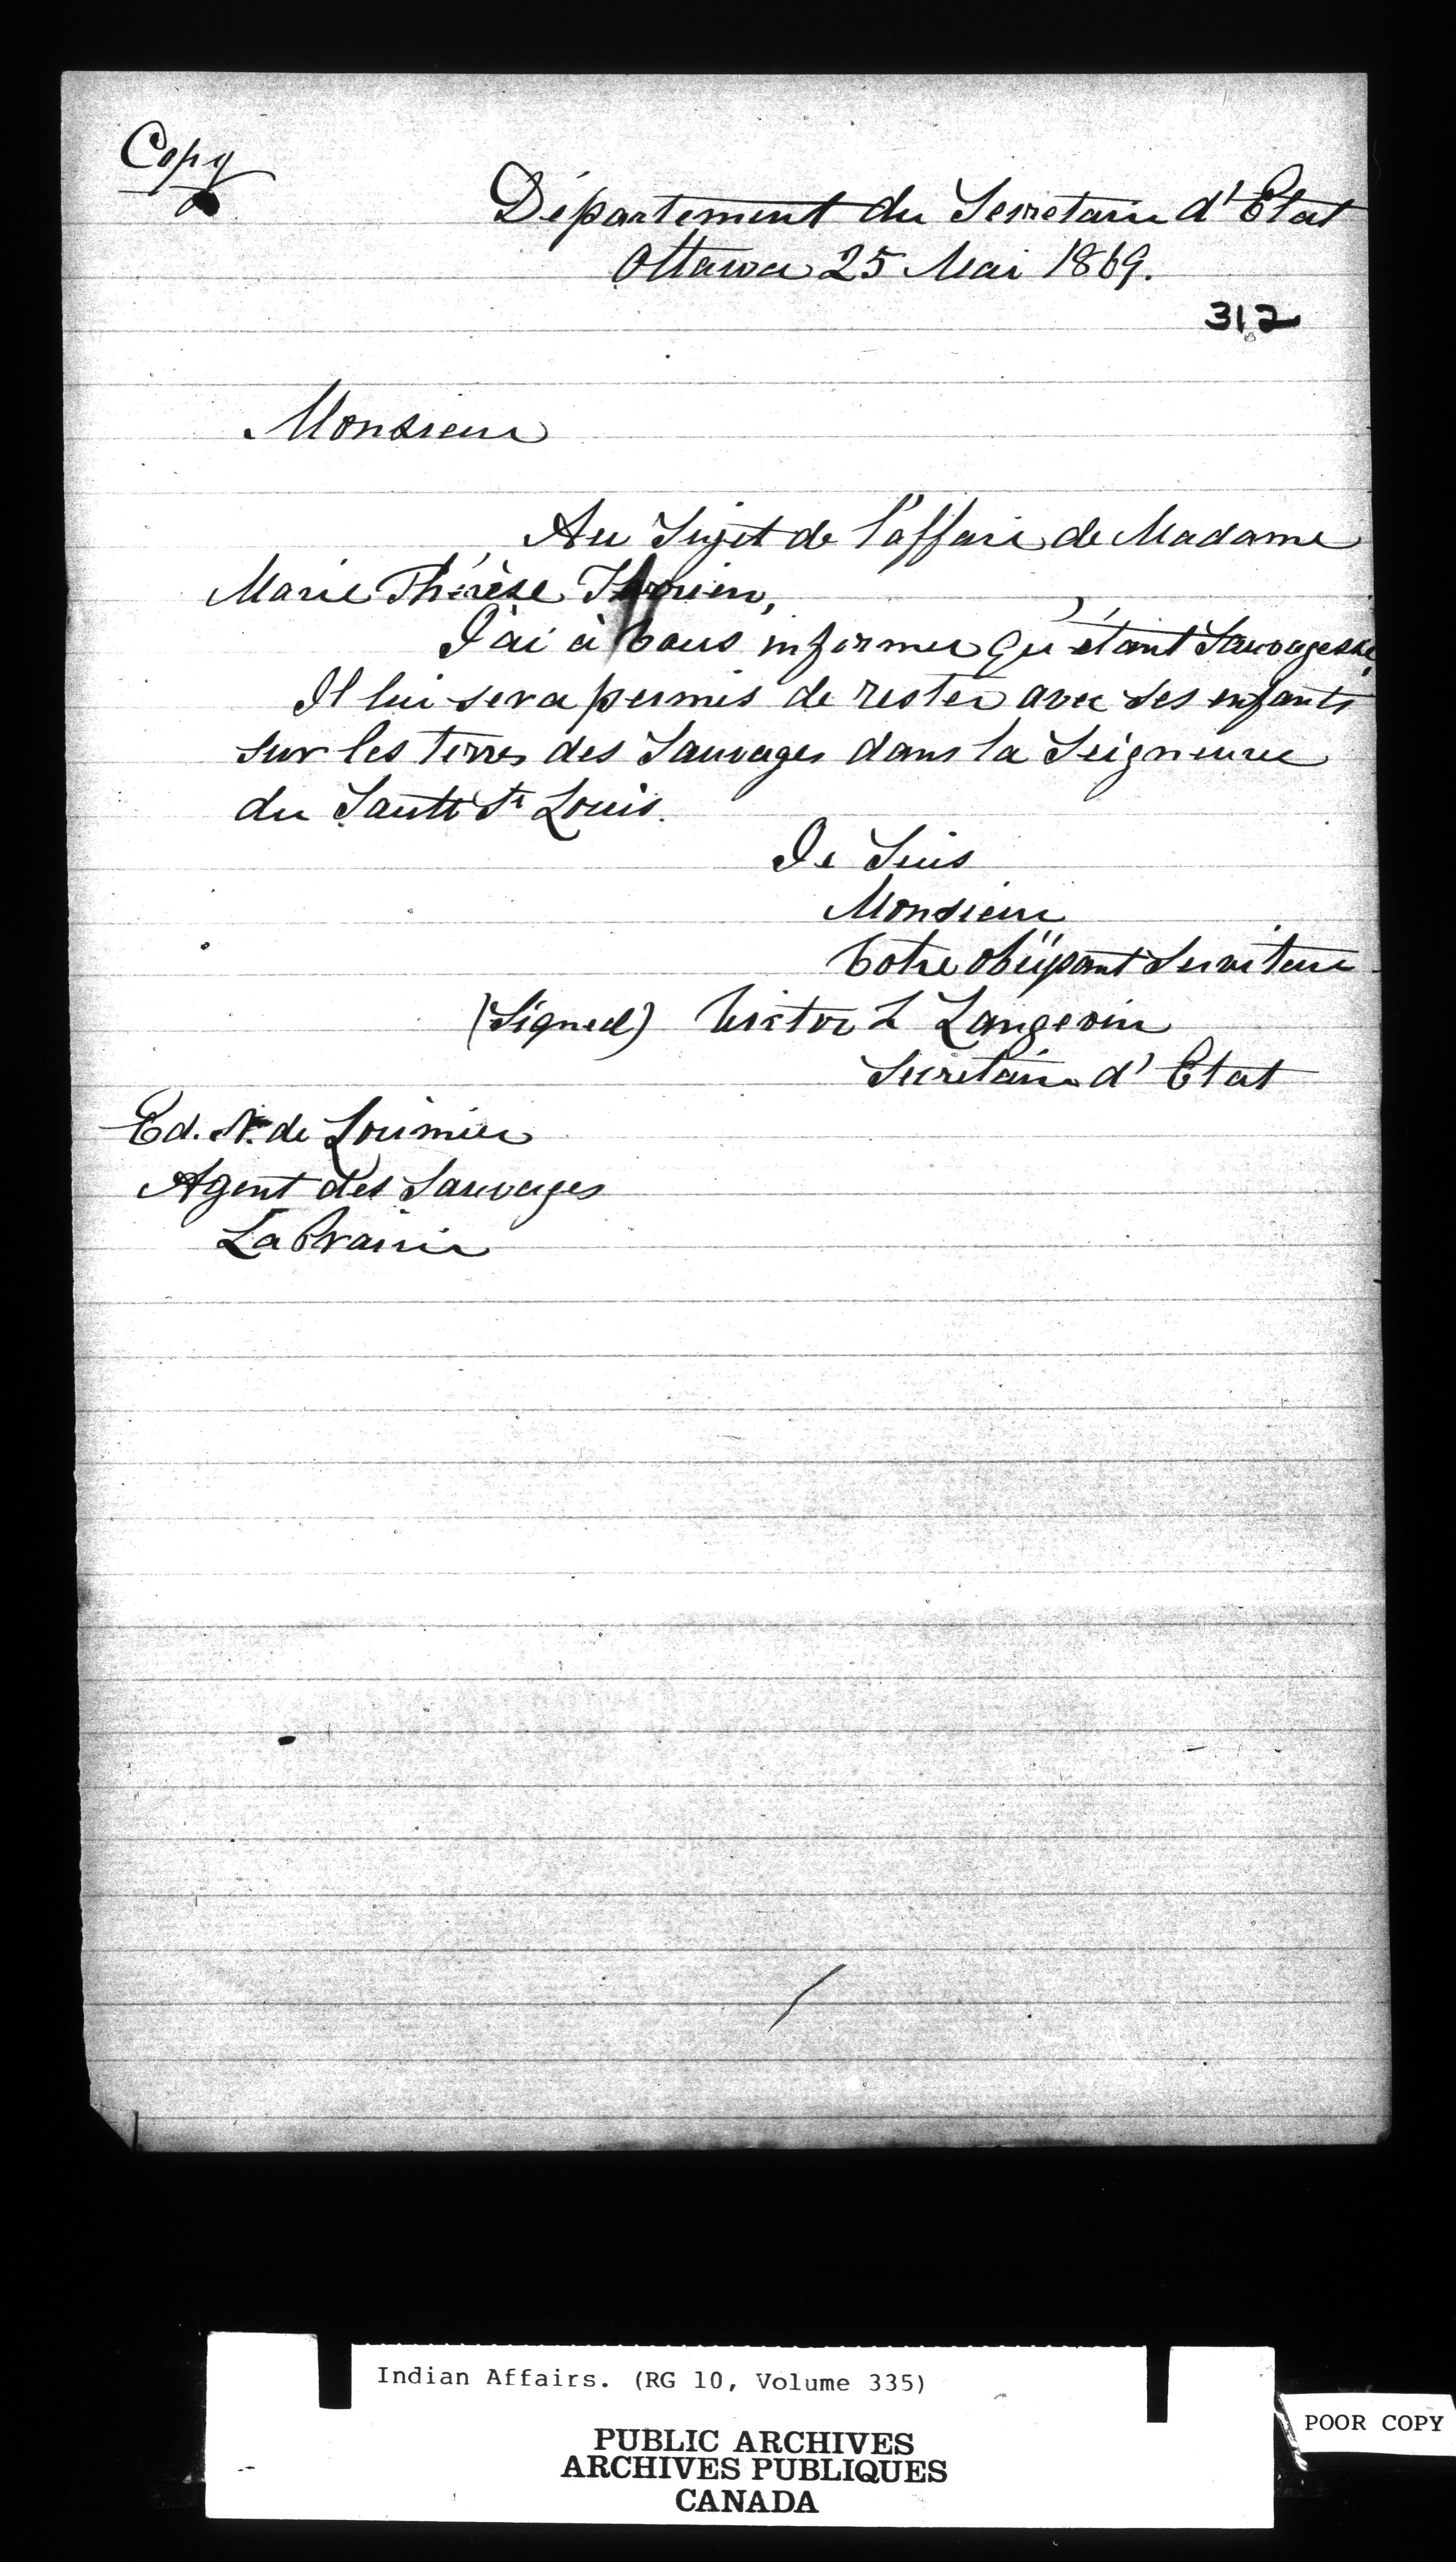 Copy
Département du Secretaire d'Etat
Ottawa 25 Mai 1869.
312
Monsieur
Au Sujet de l'affaire de Madame
Marie Thérèse
J'ai à Vous informer qu'étant Sauvagesse,
Il lui sera permis de rester avec ses enfants
sur les terres des Sauvages dans la Seigneurie
du Sault St Louis.
Je Suis
Monsieur
Votre obéissant Serviteur
(Signed) Hector L Langevin
Secretaire d'Etat
Ed. N. de Lorimier
Agent des Sauvages
La Prairie
Indian Affairs. (RG 10, Volume 335)
PUBLIC ARCHIVES
ARCHIVES PUBLIQUES
CANADA
POOR COPY